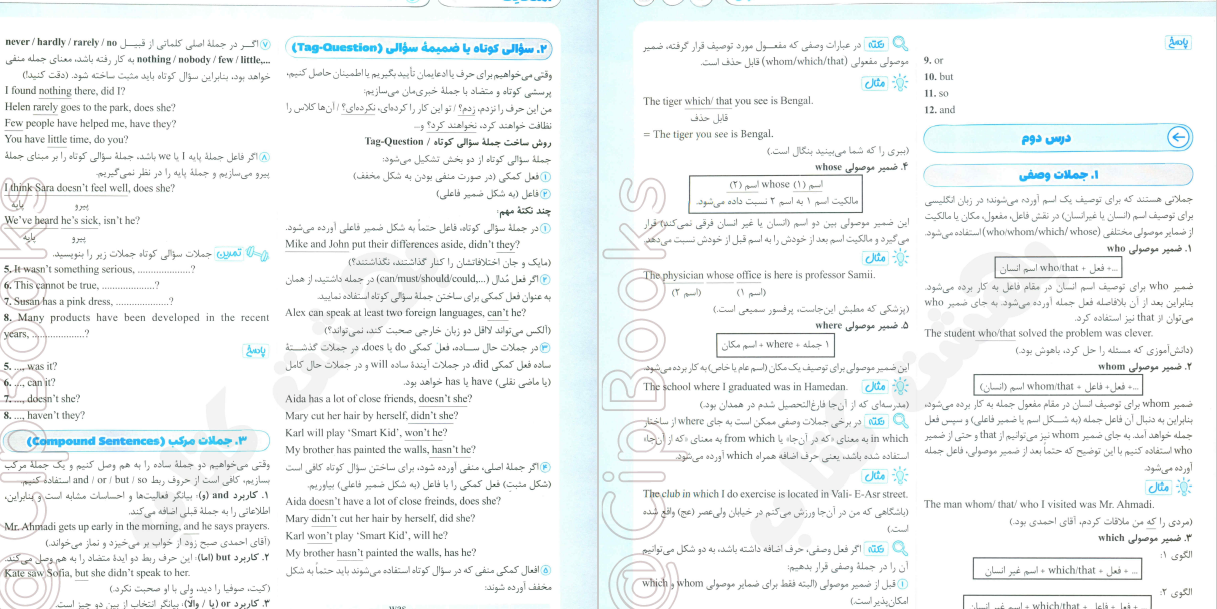 پاسخ
9. or
10. but
11. so
12. and
درس دوم
۱. جملات وصفی
جملاتی هستند که برای توصیف یک اسم آورده می‌شوند؛ در زبان انگلیسی
برای توصیف اسم (انسان یا غیرانسان) در نقش فاعل، مفعول، مکان یا مالکیت
از ضمایر موصولی مختلفی (who/whom/which/ whose) استفاده می‌شود.
۱. ضمیر موصولی who
...+ فعل + who/that + اسم انسان
ضمیر who برای توصیف اسم انسان در مقام فاعل به کار برده می‌شود.
بنابراین بعد از آن بلافاصله فعل جمله آورده می‌شود. به جای ضمیر who
می‌توان از that نیز استفاده کرد.
The student who/that solved the problem was clever.
(دانش‌آموزی که مسئله را حل کرد، باهوش بود.)
۲. ضمیر موصولی whom
...+ فعل+ فاعل + whom/that + اسم (انسان)
ضمیر whom برای توصیف انسان در مقام مفعول جمله به کار برده می‌شود،
بنابراین به دنبال آن فاعل جمله (به شکل اسم یا ضمیر فاعلی) و سپس فعل
جمله خواهد آمد. به جای ضمیر whom نیز می‌توانیم از that و حتی از ضمیر
who استفاده کنیم با این توضیح که حتماً بعد از ضمیر موصولی، فاعل جمله
آورده می‌شود.
مثال
The man whom/ that/ who I visited was Mr. Ahmadi.
(مردی را که من ملاقات کردم، آقای احمدی بود.)
۳. ضمیر موصولی which
الگوی ۱:
... + فعل + which/that + اسم غیر انسان
الگوی ۲:
... + فعل + فاعل + which/that + اسم غیر انسان
نکته در عبارات وصفی که مفعول مورد توصیف قرار گرفته، ضمیر
موصولی مفعولی (whom/which/that) قابل حذف است.
مثال
The tiger which/ that you see is Bengal.
قابل حذف
= The tiger you see is Bengal.
(ببری را که شما می‌بینید بنگال است.)
۴. ضمیر موصولی whose
اسم (۱) whose اسم (۲)
مالکیت اسم ۱ به اسم ۲ نسبت داده می‌شود.
این ضمیر موصولی بین دو اسم (انسان یا غیر انسان فرقی نمی‌کند) قرار
می‌گیرد و مالکیت اسم بعد از خودش را به اسم قبل از خودش نسبت می‌دهد.
مثال
The physician whose office is here is professor Samii.
(اسم ۱) (اسم ۲)
(پزشکی که مطبش این‌جاست، پرفسور سمیعی است.)
۵. ضمیر موصولی where
۱ جمله + where + اسم مکان
این ضمیر موصولی برای توصیف یک مکان (اسم عام یا خاص) به کار برده می‌شود.
مثال The school where I graduated was in Hamedan.
(مدرسه‌ای که از آن‌جا فارغ‌التحصیل شدم در همدان بود.)
نکته در برخی جملات وصفی ممکن است به جای where از ساختار
in which به معنای «که در آن‌جا» یا from which به معنای «که از آن‌جا»
استفاده شده باشد، یعنی حرف اضافه همراه which آورده می‌شود.
مثال
The club in which I do exercise is located in Vali- E-Asr street.
(باشگاهی که من در آن‌جا ورزش می‌کنم در خیابان ولی‌عصر (عج) واقع شده
است.)
نکته اگر فعل وصفی، حرف اضافه داشته باشد، به دو شکل می‌توانیم
آن را در جملهٔ وصفی قرار بدهیم:
۱ قبل از ضمیر موصولی (البته فقط برای ضمایر موصولی whom و which
امکان‌پذیر است.)
۲. سؤالی کوتاه یا ضمیمهٔ سؤالی (Tag-Question)
وقتی می‌خواهیم برای حرف یا ادعایمان تأیید بگیریم یا اطمینان حاصل کنیم،
پرسشی کوتاه و متضاد با جملهٔ خبری‌مان می‌سازیم:
من این حرف را نزدم، زدم؟ / تو این کار را کرده‌ای، نکرده‌ای؟ / آن‌ها کلاس را
نظافت خواهند کرد، نخواهند کرد؟ و...
روش ساخت جملهٔ سؤالی کوتاه / Tag-Question
جملهٔ سؤالی کوتاه از دو بخش تشکیل می‌شود:
۱ فعل کمکی (در صورت منفی بودن به شکل مخفف)
۲ فاعل (به شکل ضمیر فاعلی)
چند نکتهٔ مهم:
۱ در جملهٔ سؤالی کوتاه، فاعل حتماً به شکل ضمیر فاعلی آورده می‌شود.
Mike and John put their differences aside, didn't they?
(مایک و جان اختلافاتشان را کنار گذاشتند، نگذاشتند؟)
۲ اگر فعل مُدال (...,can/must/should/could) در جمله داشتید، از همان
به عنوان فعل کمکی برای ساختن جملهٔ سؤالی کوتاه استفاده نمایید.
Alex can speak at least two foreign languages, can't he?
(الکس می‌تواند لااقل دو زبان خارجی صحبت کند، نمی‌تواند؟)
۳ در جملات حال ساده، فعل کمکی do یا does، در جملات گذشتهٔ
ساده فعل کمکی did، در جملات آیندهٔ ساده will و در جملات حال کامل
(یا ماضی نقلی) have یا has خواهد بود.
Aida has a lot of close friends, doesn't she?
Mary cut her hair by herself, didn't she?
Karl will play 'Smart Kid', won't he?
My brother has painted the walls, hasn't he?
۴ اگر جملهٔ اصلی، منفی آورده شود، برای ساختن سؤال کوتاه کافی است
(شکل مثبتِ) فعل کمکی را با فاعل (به شکل ضمیر فاعلی) بیاوریم.
Aida doesn't have a lot of close freinds, does she?
Mary didn't cut her hair by herself, did she?
Karl won't play 'Smart Kid', will he?
My brother hasn't painted the walls, has he?
۵ افعال کمکی منفی که در سؤال کوتاه استفاده می‌شوند باید حتماً به شکل
مخفف آورده شوند:
was
۷ اگر در جملهٔ اصلی کلماتی از قبیل never / hardly / rarely / no
nothing / nobody / few / little,... به کار رفته باشد، معنای جمله منفی
خواهد بود، بنابراین سؤال کوتاه باید مثبت ساخته شود. (دقت کنید!)
I found nothing there, did I?
Helen rarely goes to the park, does she?
Few people have helped me, have they?
You have little time, do you?
۸ اگر فاعل جملهٔ پایه I یا we باشد، جملهٔ سؤالی کوتاه را بر مبنای جملهٔ
پیرو می‌سازیم و جملهٔ پایه را در نظر نمی‌گیریم.
I think Sara doesn't feel well, does she?
پایه پیرو
We've heard he's sick, isn't he?
پایه پیرو
تمرین جملات سؤالی کوتاه جملات زیر را بنویسید.
5. It wasn't something serious, ................?
6. This cannot be true, ................?
7. Susan has a pink dress, ................?
8. Many products have been developed in the recent
years, ................?
پاسخ
5. ..., was it?
6. ..., can it?
7. ..., doesn't she?
8. ..., haven't they?
۳. جملات مرکب (Compound Sentences)
وقتی می‌خواهیم دو جملهٔ ساده را به هم وصل کنیم و یک جملهٔ مرکب
بسازیم، کافی است از حروف ربط and / or / but / so استفاده کنیم.
۱. کاربرد and (و): بیانگر فعالیت‌ها و احساسات مشابه است و بنابراین،
اطلاعاتی را به جملهٔ قبلی اضافه می‌کند.
Mr. Ahmadi gets up early in the morning, and he says prayers.
(آقای احمدی صبح زود از خواب بر می‌خیزد و نماز می‌خواند.)
۲. کاربرد but (اما): این حرف ربط دو ایدهٔ متضاد را به هم وصل می‌کند.
Kate saw Sofia, but she didn't speak to her.
(کیت، صوفیا را دید، ولی با او صحبت نکرد.)
۳. کاربرد or (یا / والّا): بیانگر انتخاب از بین دو چیز است.
@CipBooks
@CipBooks